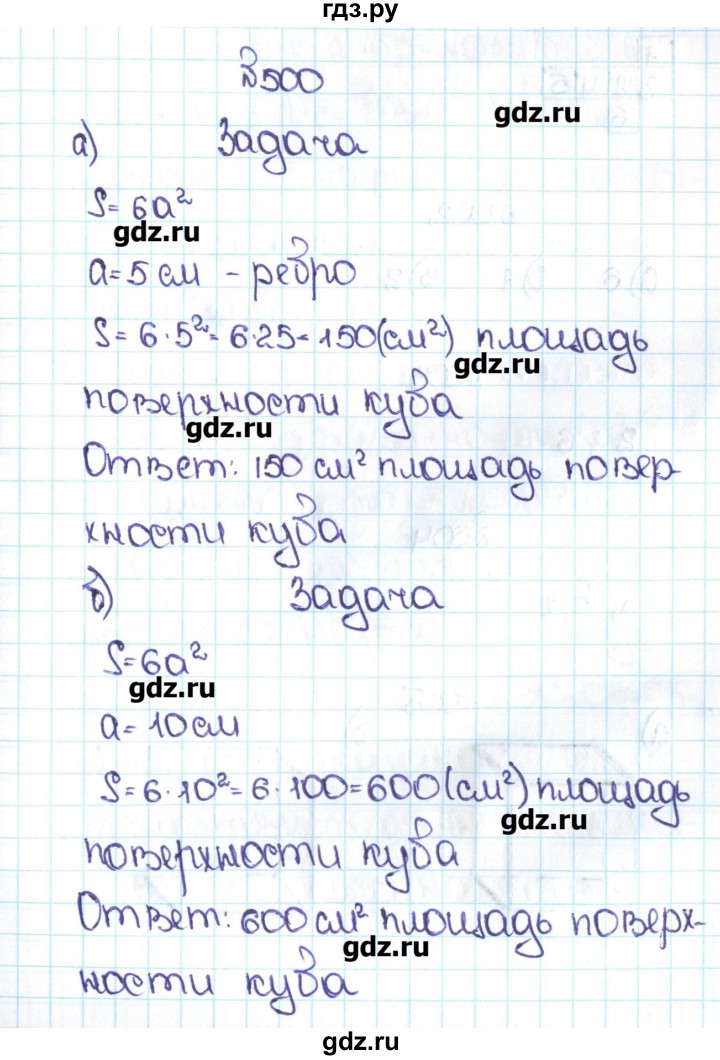 гдз.ру
№500
gdz.ru
а) Задача
S= 6a²
gdz.ru
a=5 см - ребро
S= 6·5²= 6·25= 150(см²) площадь
gdz.ru
поверхности куба
gdz.ru
Ответ: 150 см² площадь повер-
хности куба
б) Задача
S=6a²
gdz.ru
a= 10 см
S= 6·10²= 6·100=600(см²) площадь
gdz.ru
поверхности куба
Ответ: 600 см² площадь поверх-
gdz.ru
ности куба
gdz.ru